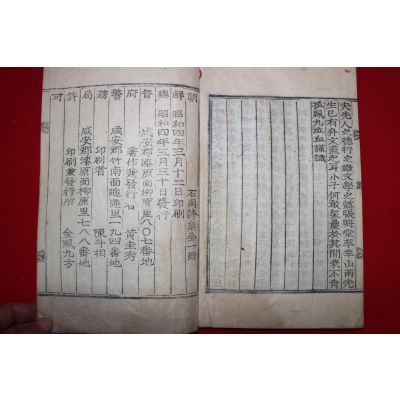 夫先人之德行之媺文學之懿張晦堂李辛山兩先
生已有弁文盡之耳小子何敢架疊於其間哉不肖
孤鳳九泣血謹識
石南詩集全一冊
朝鮮總督府警務局許可
昭和四年三月十二日印刷
昭和四年三月三十日發行
咸安郡漆原面 原里八〇七番地
著作兼發行者 黃圭秀
咸安郡竹南面 里一九四番地
印刷者 陳斗相
咸安郡漆原面柳原里七八八番地
印刷兼發行所 金鳳九方